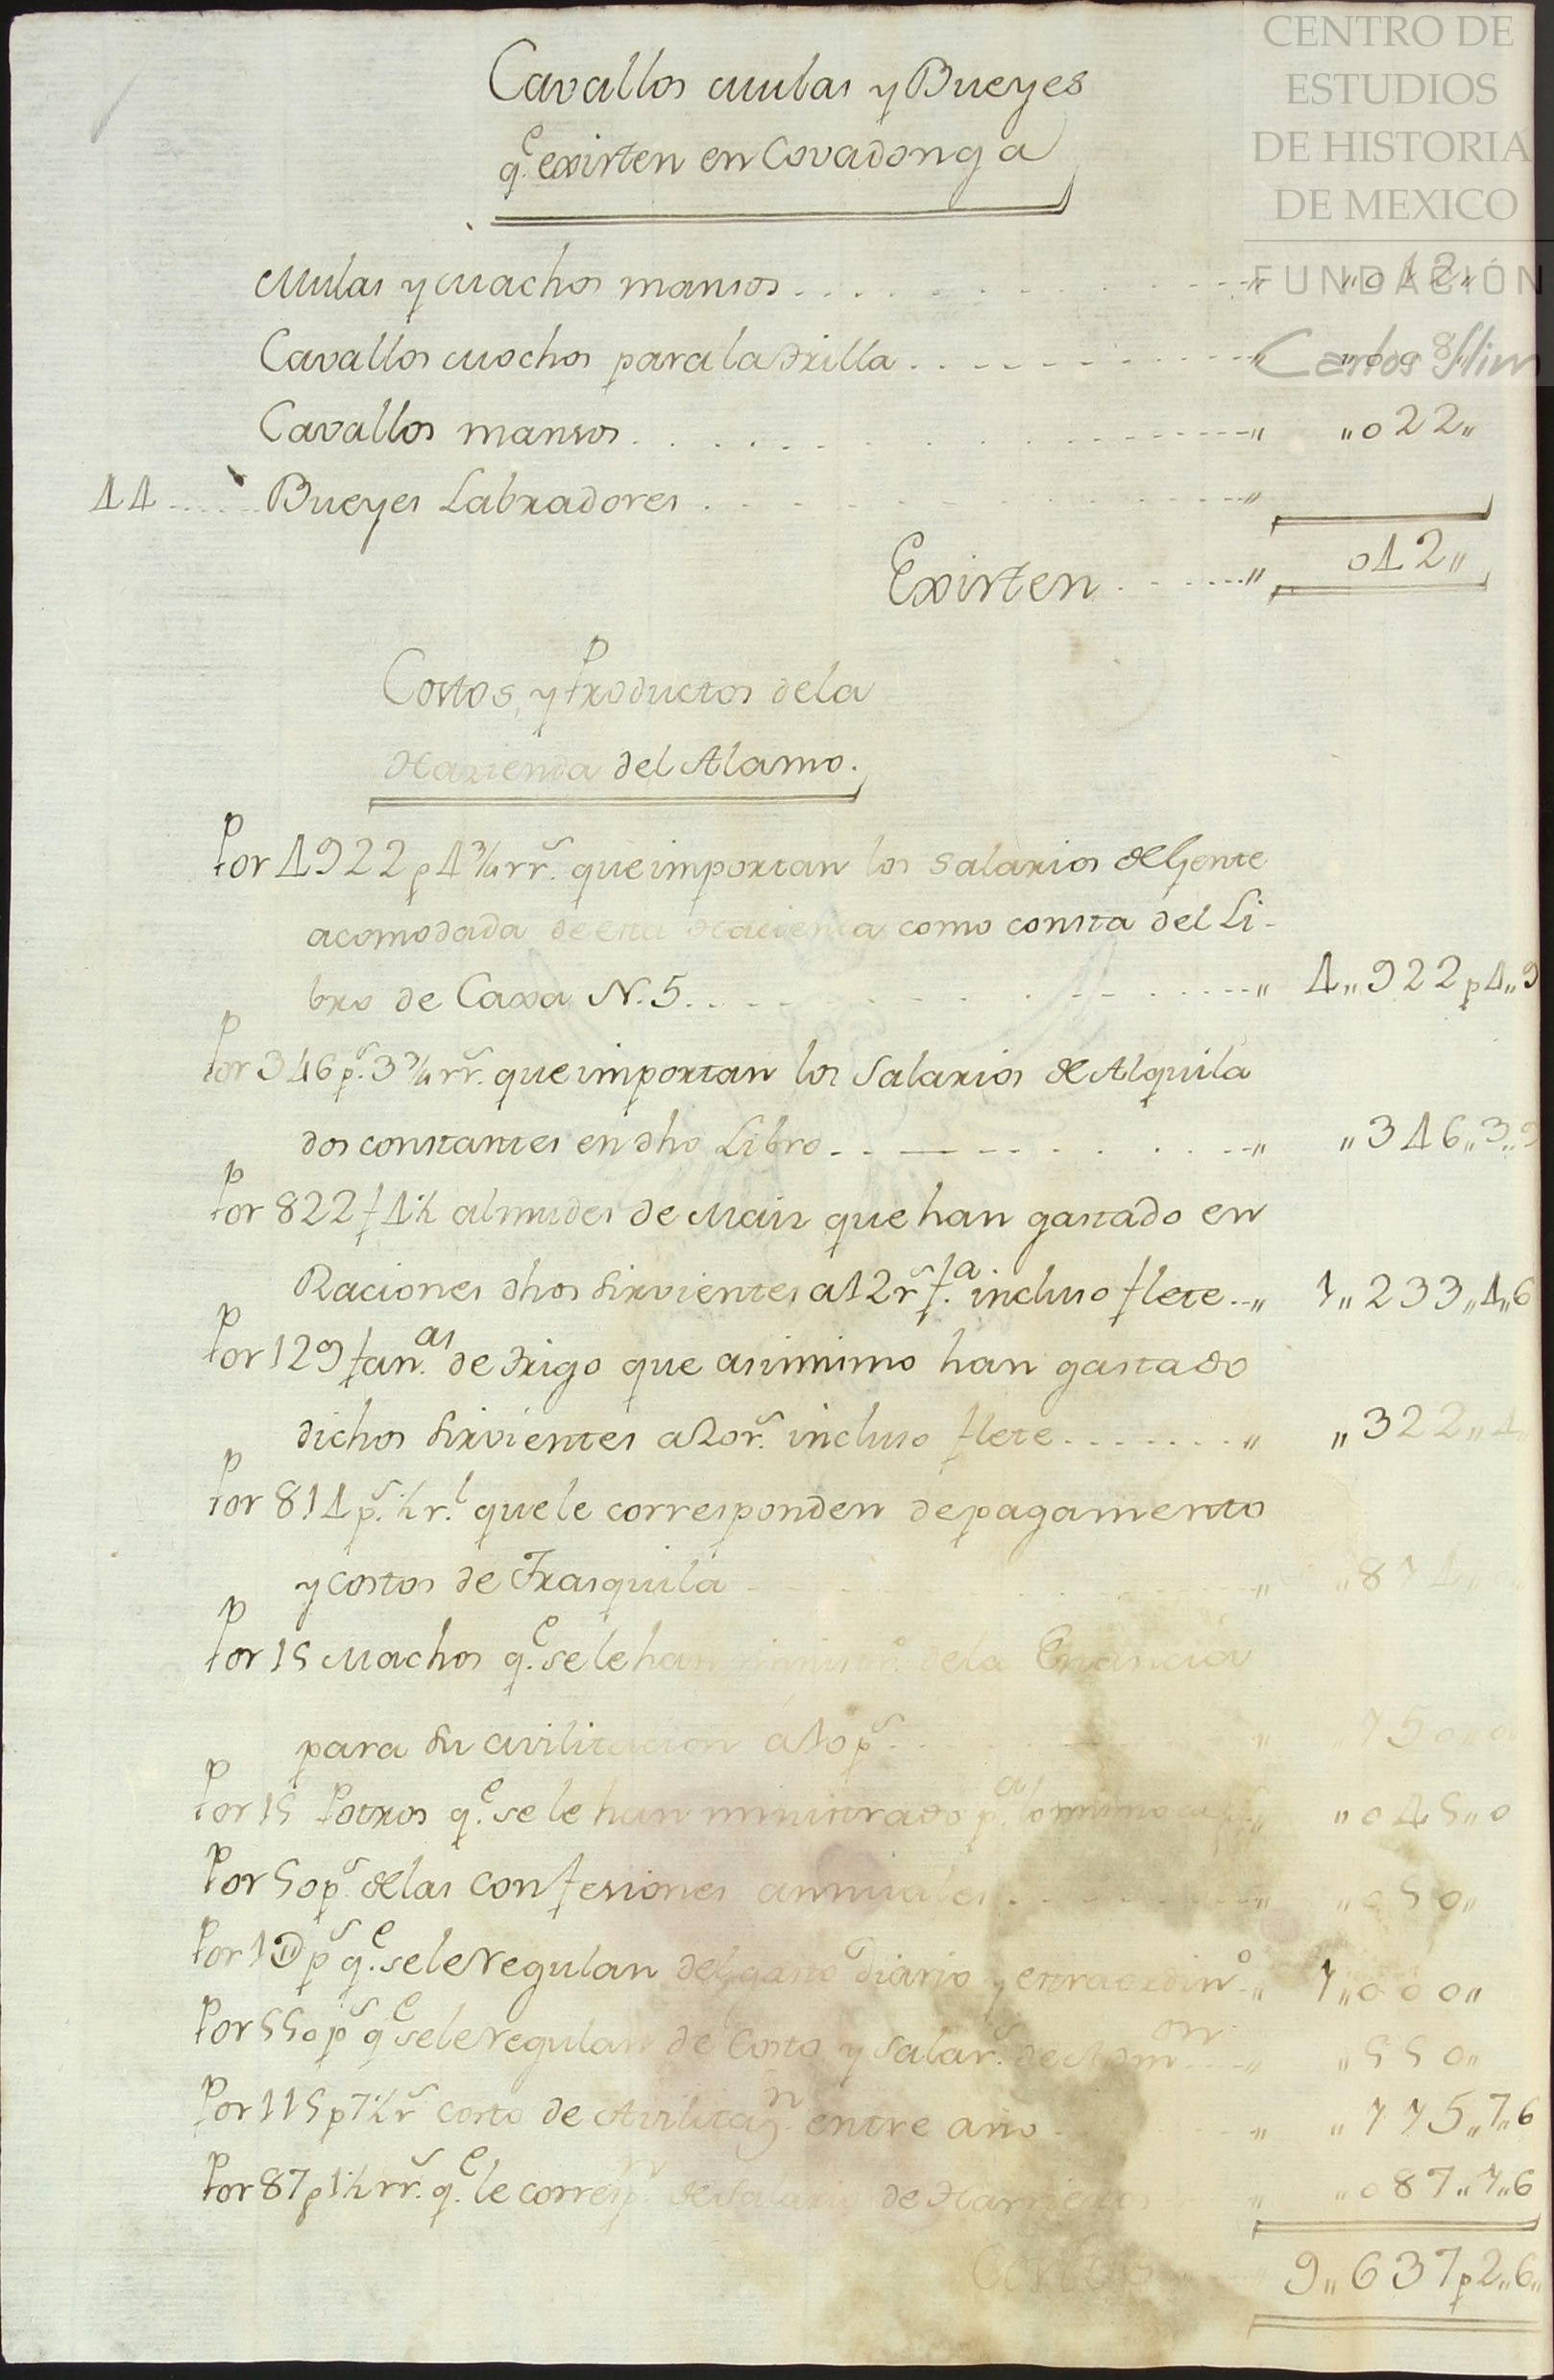 CENTRO DE
ESTUDIOS
DE HISTORIA
DE MEXICO
FUNDACIÓN
Carlos Slim
Cavallos mulas y Bueyes
q.e existen en Covadonga
Mulas y machos mansos . . . . . . . . „ „012„
Cavallos mochos para la trilla . . . . . . . . „ „008„
Cavallos mansos . . . . . . . . „ „022„
44 . . . . Bueyes Labradores . . . . . . . . „
Existen . . . . „ 042„
Costos, y Productos de la
Hacienda del Alamo.
Por 4922 p 4¾ rr.s que importan los salarios de Gente
acomodada de esta Hacienda como consta del Li-
bro de Caxa N. 5. . . . . . . . „ 4„922 p 4„9
Por 346 p.s 3¾ rr.s que importan los Salarios de Alquila
dos constantes en dho Libro . . . . . . . „ „346„3„9
Por 822 f 4½ almudes de Maiz que han gastado en
Raciones dhos Sirvientes a 12 r.s f.a incluso flete . . „ 1„233„4„6
Por 129 fan.as de trigo que asimismo han gastado
dichos Sirvientes a 20 r.s incluso flete . . . . . . . „ „322„4„
Por 814 p.s ½ r.l que le corresponden de pagamento
y costos de Trasquila . . . . „ „814„
Por 15 Machos q.e se le han minist.o de la Estancia
para su avilitacion a 10 p.s . . . . „ „150„0
Por 15 Potros q.e se le han ministrado p.a lo mismo „ „045„0
Por 50 p.s de las confesiones annuales . . . . . . . „ „050„
Por 1D p.s q.e se le regulan del gasto diario y extraordin.o „ 1„000„
Por 550 p.s q.e se le regulan de Costo y Salar.s de Adm.on . . „ „550„
Por 115 p 7½ r.s costo de Avilitaz.n entre año . . . . „ „115„7„6
Por 87 p 1½ rr.s q.e le corresp.n de salario de Harrieros „ „087„1„6
Costos 9„637 p 2„6„